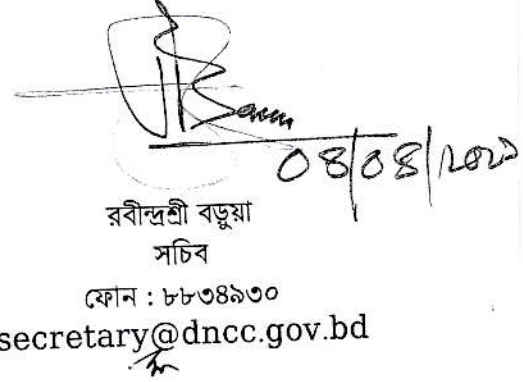 ০৪/০৪/২০২১
রবীন্দ্রশ্রী বড়ুয়া
সচিব
ফোন : ৮৮৩৪৯৩০
secretary@dncc.gov.bd